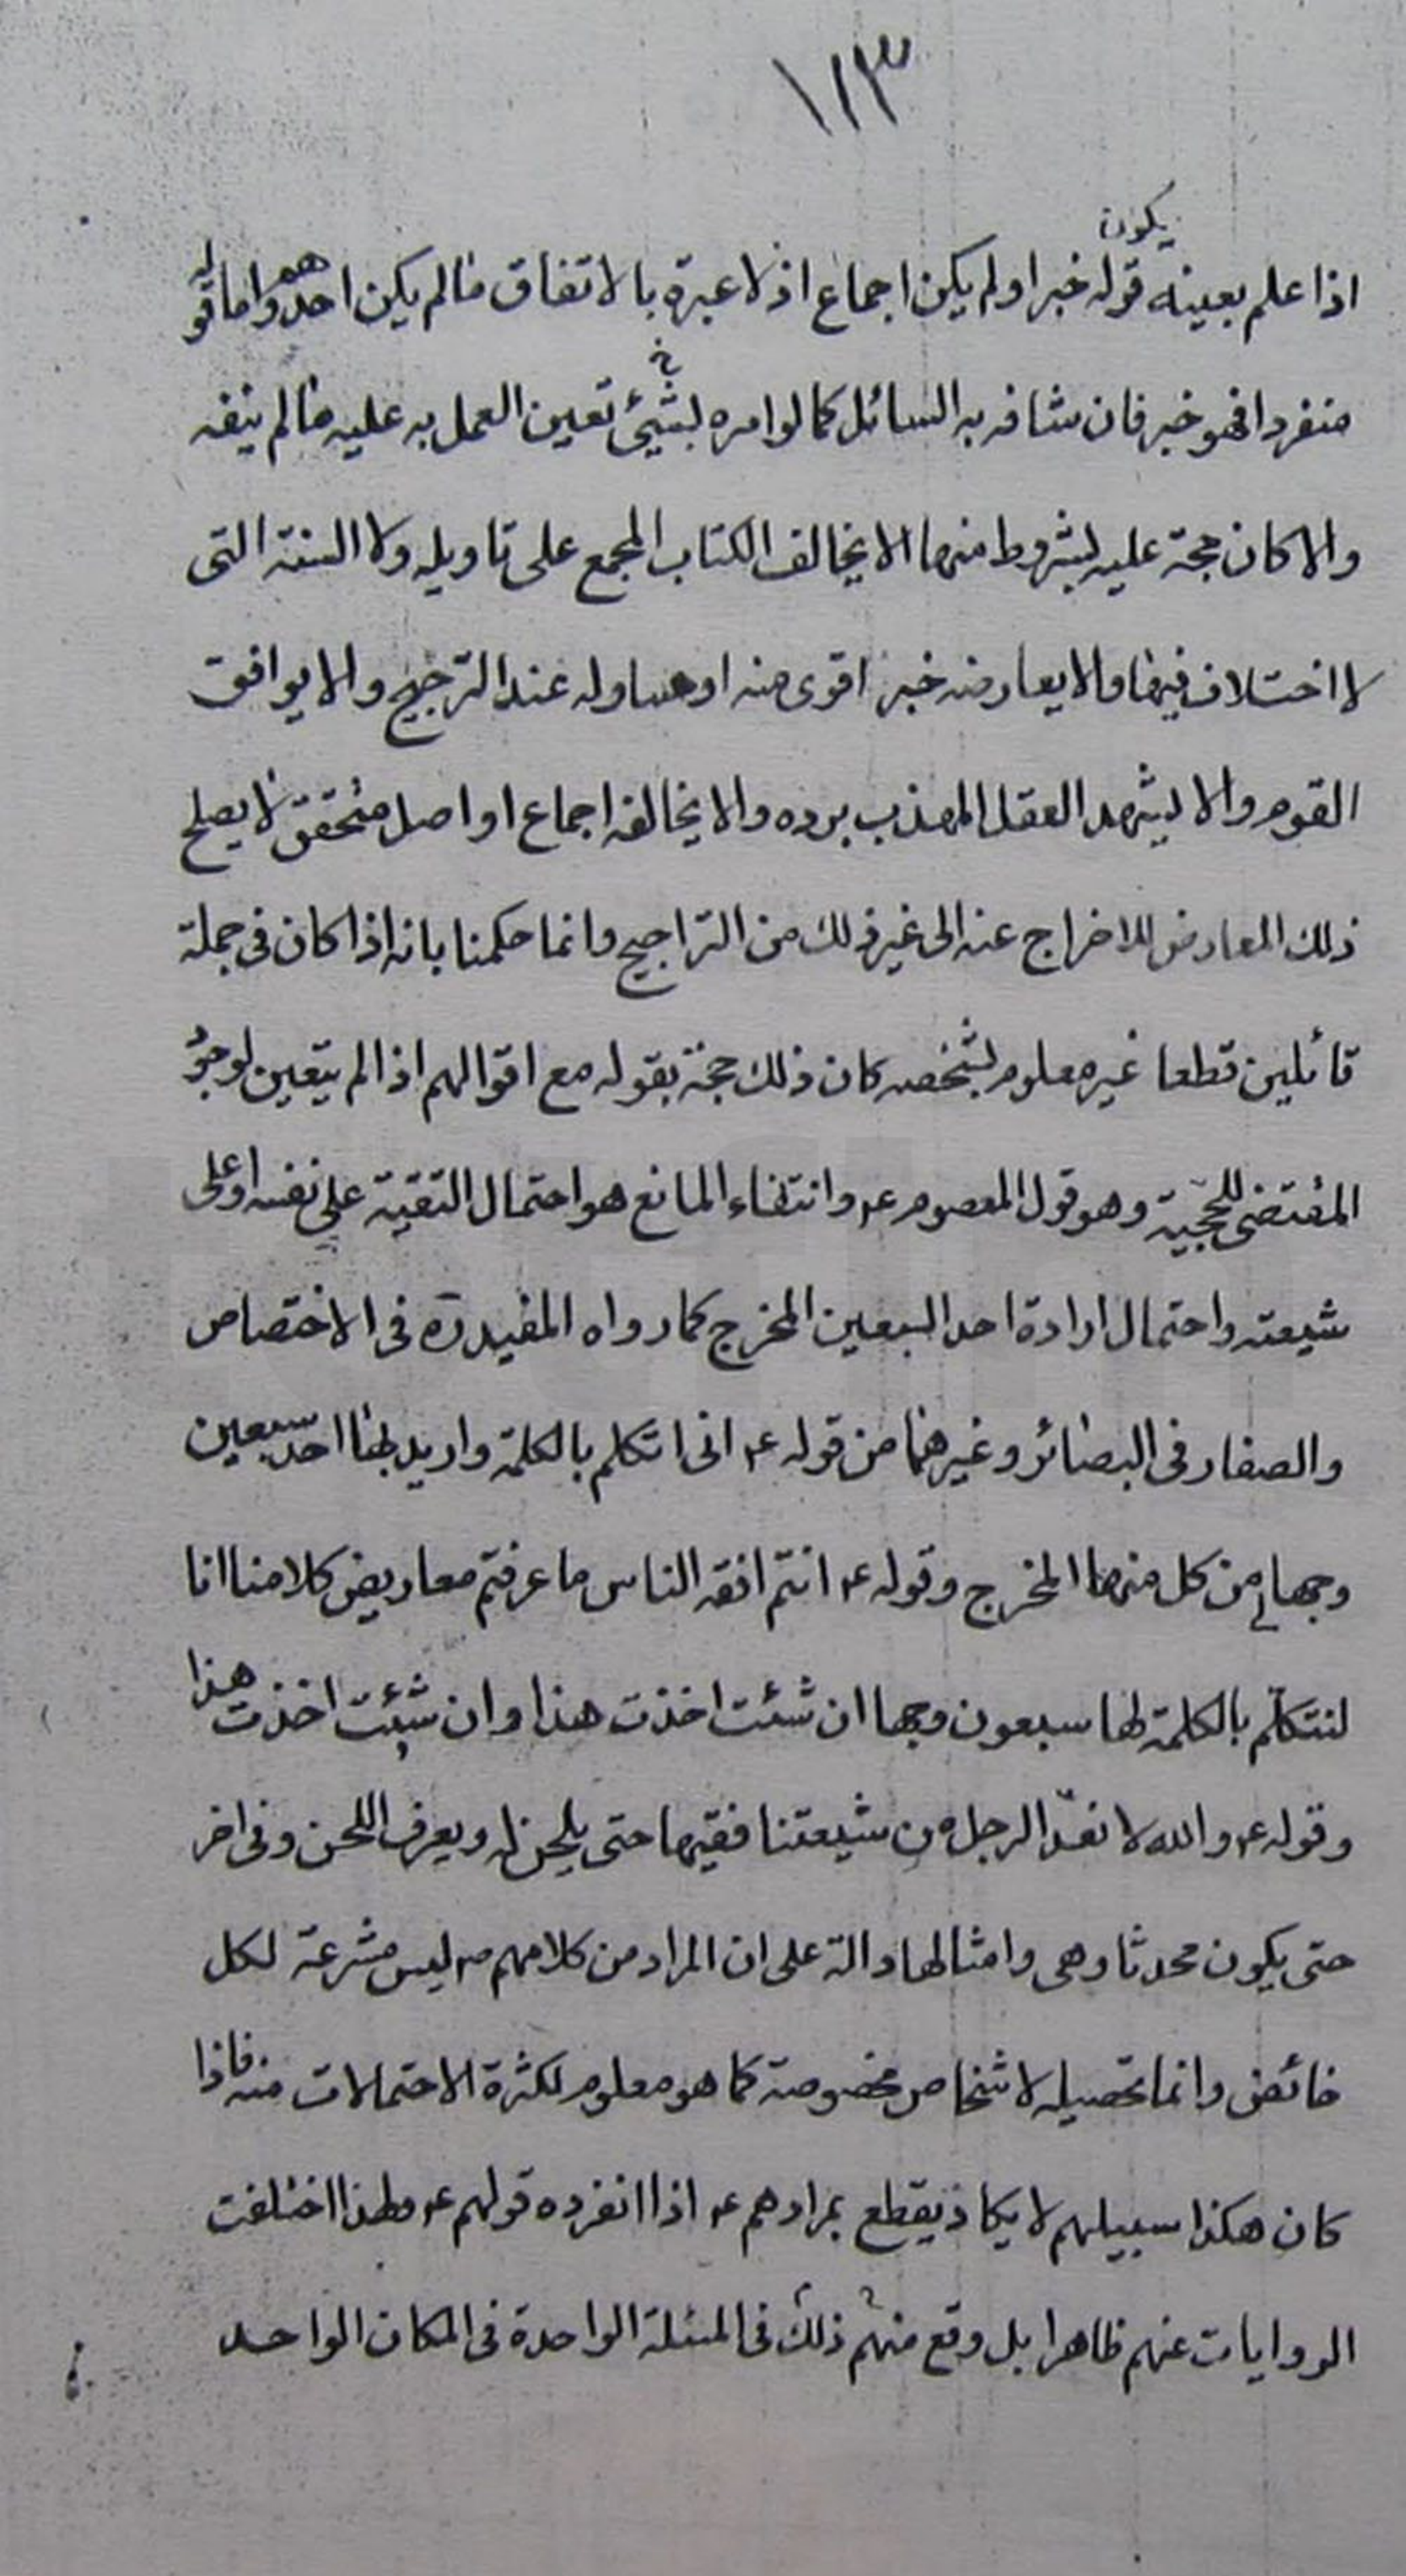 ١١٣
اذا علم بعينه يكون قوله خبرا ولم يكن اجماع اذ لا عبرة بالاتفاق مالم يكن احدهم واما قوله
منفردا فهو خبر فان شافه به السائل كما لو امره بشيئ تعين العمل به عليه مالم ينفه
والا كان حجة عليه بشروط منها الا يخالف الكتاب المجمع على تاويله ولا السنة التى
لا اختلاف فيها والا يعارضه خبر اقوى منه او مساو له عند الترجيح والا يوافق
القوم والا يشهد العقل المهذب برده والا يخالفه اجماع او اصل متحقق لا يصلح
ذلك المعارض للاخراج عنه الى غير ذلك من التراجيح وانما حكمنا بانه اذا كان فى جملة
قائلين قطعا غير معلوم بشخصه كان ذلك حجة بقوله مع اقوالهم اذا لم يتعين لوجود
المقتضى للحجّية وهو قول المعصوم ع وانتفاء المانع هو احتمال التقية على نفسه او على
شيعته واحتمال ارادة احد السبعين المخرج كما رواه المفيد ره فى الاختصاص
والصفار فى البصائر وغيرهما من قوله ع انى اتكلم بالكلمة واريد بها احد سبعين
وجها لى من كل منها المخرج وقوله ع انتم افقه الناس ما عرفتم معاريض كلامنا انا
لنتكلّم بالكلمة لها سبعون وجها ان شئت اخذت هذا وان شئت اخذت هذا
وقوله ع والله لا نعدّ الرجل من شيعتنا فقيها حتى يلحن له ويعرف اللحن وفى اخر
حتى يكون محدثا وهى وامثالها دالة على ان المراد من كلامهم ع ليس مشرعة لكل
خائض وانما تحصيله لاشخاص مخصوصة كما هو معلوم لكثرة الاحتمالات منه فاذا
كان هكذا سبيلهم لا يكاد يقطع بمرادهم ع اذا انفرد قولهم ع ولهذا اختلفت
الروايات عنهم ظاهرا بل وقع منهم ذلك فى المسئلة الواحدة فى المكان الواحد